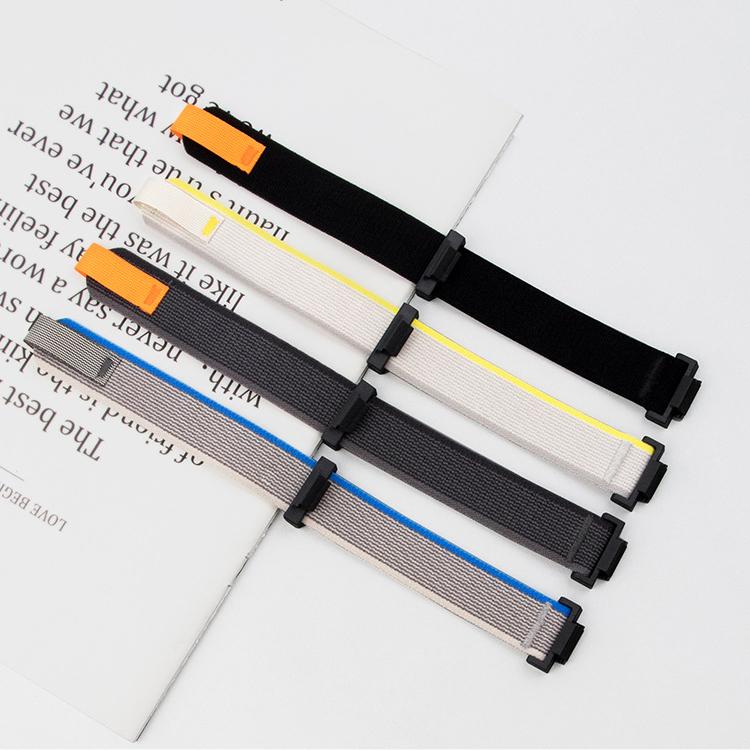 The best
of friend is the kin
on sw
with, never say a wor
ay feelin
like it was the best
you've ever
had.It's true that we
what
got
LOVE BEGI